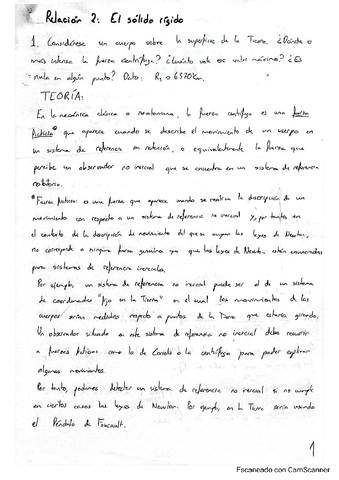 Relación 2: El sólido rígido
1. Considérese un cuerpo sobre la superficie de la Tierra. ¿Dónde es
más intensa la fuerza centrífuga? ¿Cuánto vale ese valor máximo? ¿Es
nula en algún punto? Dato: R = 6370 Km.
TEORÍA:
En la mecánica clásica o newtoniana, la fuerza centrífuga es una fuerza
ficticia* que aparece cuando se describe el movimiento de un cuerpo en
un sistema de referencia en rotación, o equivalentemente la fuerza que
percibe un observador no inercial que se encuentra en un sistema de referencia
rotatorio.
*Fuerza ficticia: es una fuerza que aparece cuando se realiza la descripción de un
movimiento con respecto a un sistema de referencia no inercial y, por tanto, en
el contexto de la descripción de movimiento del que se ocupan las leyes de Newton,
no corresponde a ninguna fuerza genuina ya que las leyes de Newton están enunciadas
para sistemas de referencia inerciales.
Por ejemplo, un sistema de referencia no inercial puede ser el de un sistema
de coordenadas "fijo en la Tierra" en el cual los movimientos de los
cuerpos serían medidos respecto a puntos de la Tierra que estaría girando.
Un observador situado en este sistema de referencia no inercial debe recurrir
a fuerzas ficticias como la de Coriolis o la centrífuga para poder explicar
algunos movimientos.
Por tanto, podemos detectar un sistema de referencia no inercial si no cumple
en ciertos casos las leyes de Newton. Por ejemplo, en la Tierra sería usando
el Péndulo de Foucault.
1
Escaneado con CamScanner